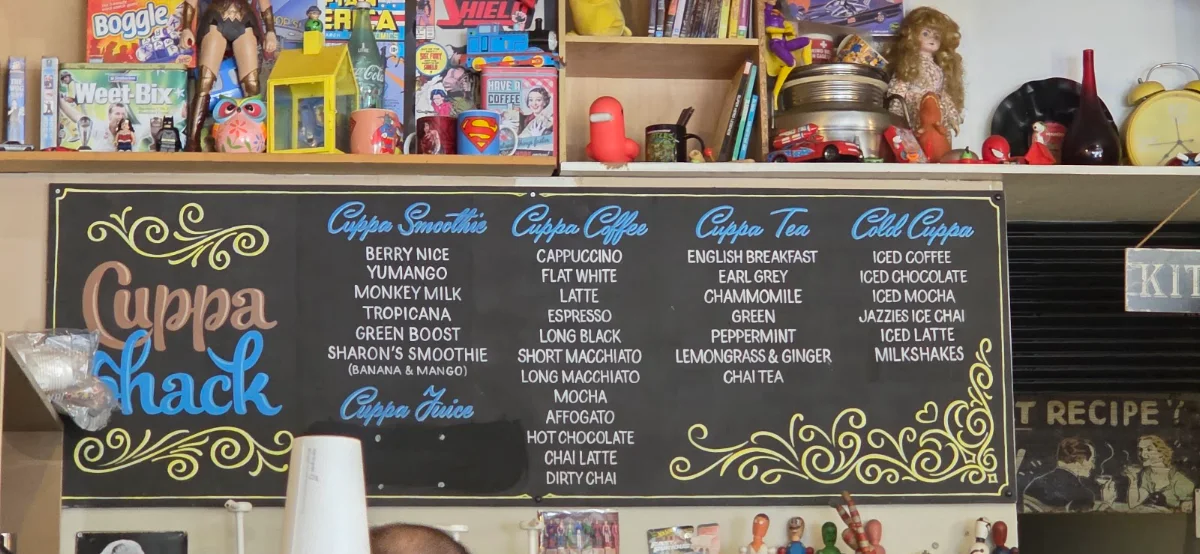 Boggle
SHIELD
Weet-Bix
Coca-Cola
HAVE A
COFFEE
Cuppa
Shack
Cuppa Smoothie
BERRY NICE
YUMANGO
MONKEY MILK
TROPICANA
GREEN BOOST
SHARON'S SMOOTHIE
(BANANA & MANGO)
Cuppa Juice
Cuppa Coffee
CAPPUCCINO
FLAT WHITE
LATTE
ESPRESSO
LONG BLACK
SHORT MACCHIATO
LONG MACCHIATO
MOCHA
AFFOGATO
HOT CHOCOLATE
CHAI LATTE
DIRTY CHAI
Cuppa Tea
ENGLISH BREAKFAST
EARL GREY
CHAMMOMILE
GREEN
PEPPERMINT
LEMONGRASS & GINGER
CHAI TEA
Cold Cuppa
ICED COFFEE
ICED CHOCOLATE
ICED MOCHA
JAZZIES ICE CHAI
ICED LATTE
MILKSHAKES
KIT
T RECIPE